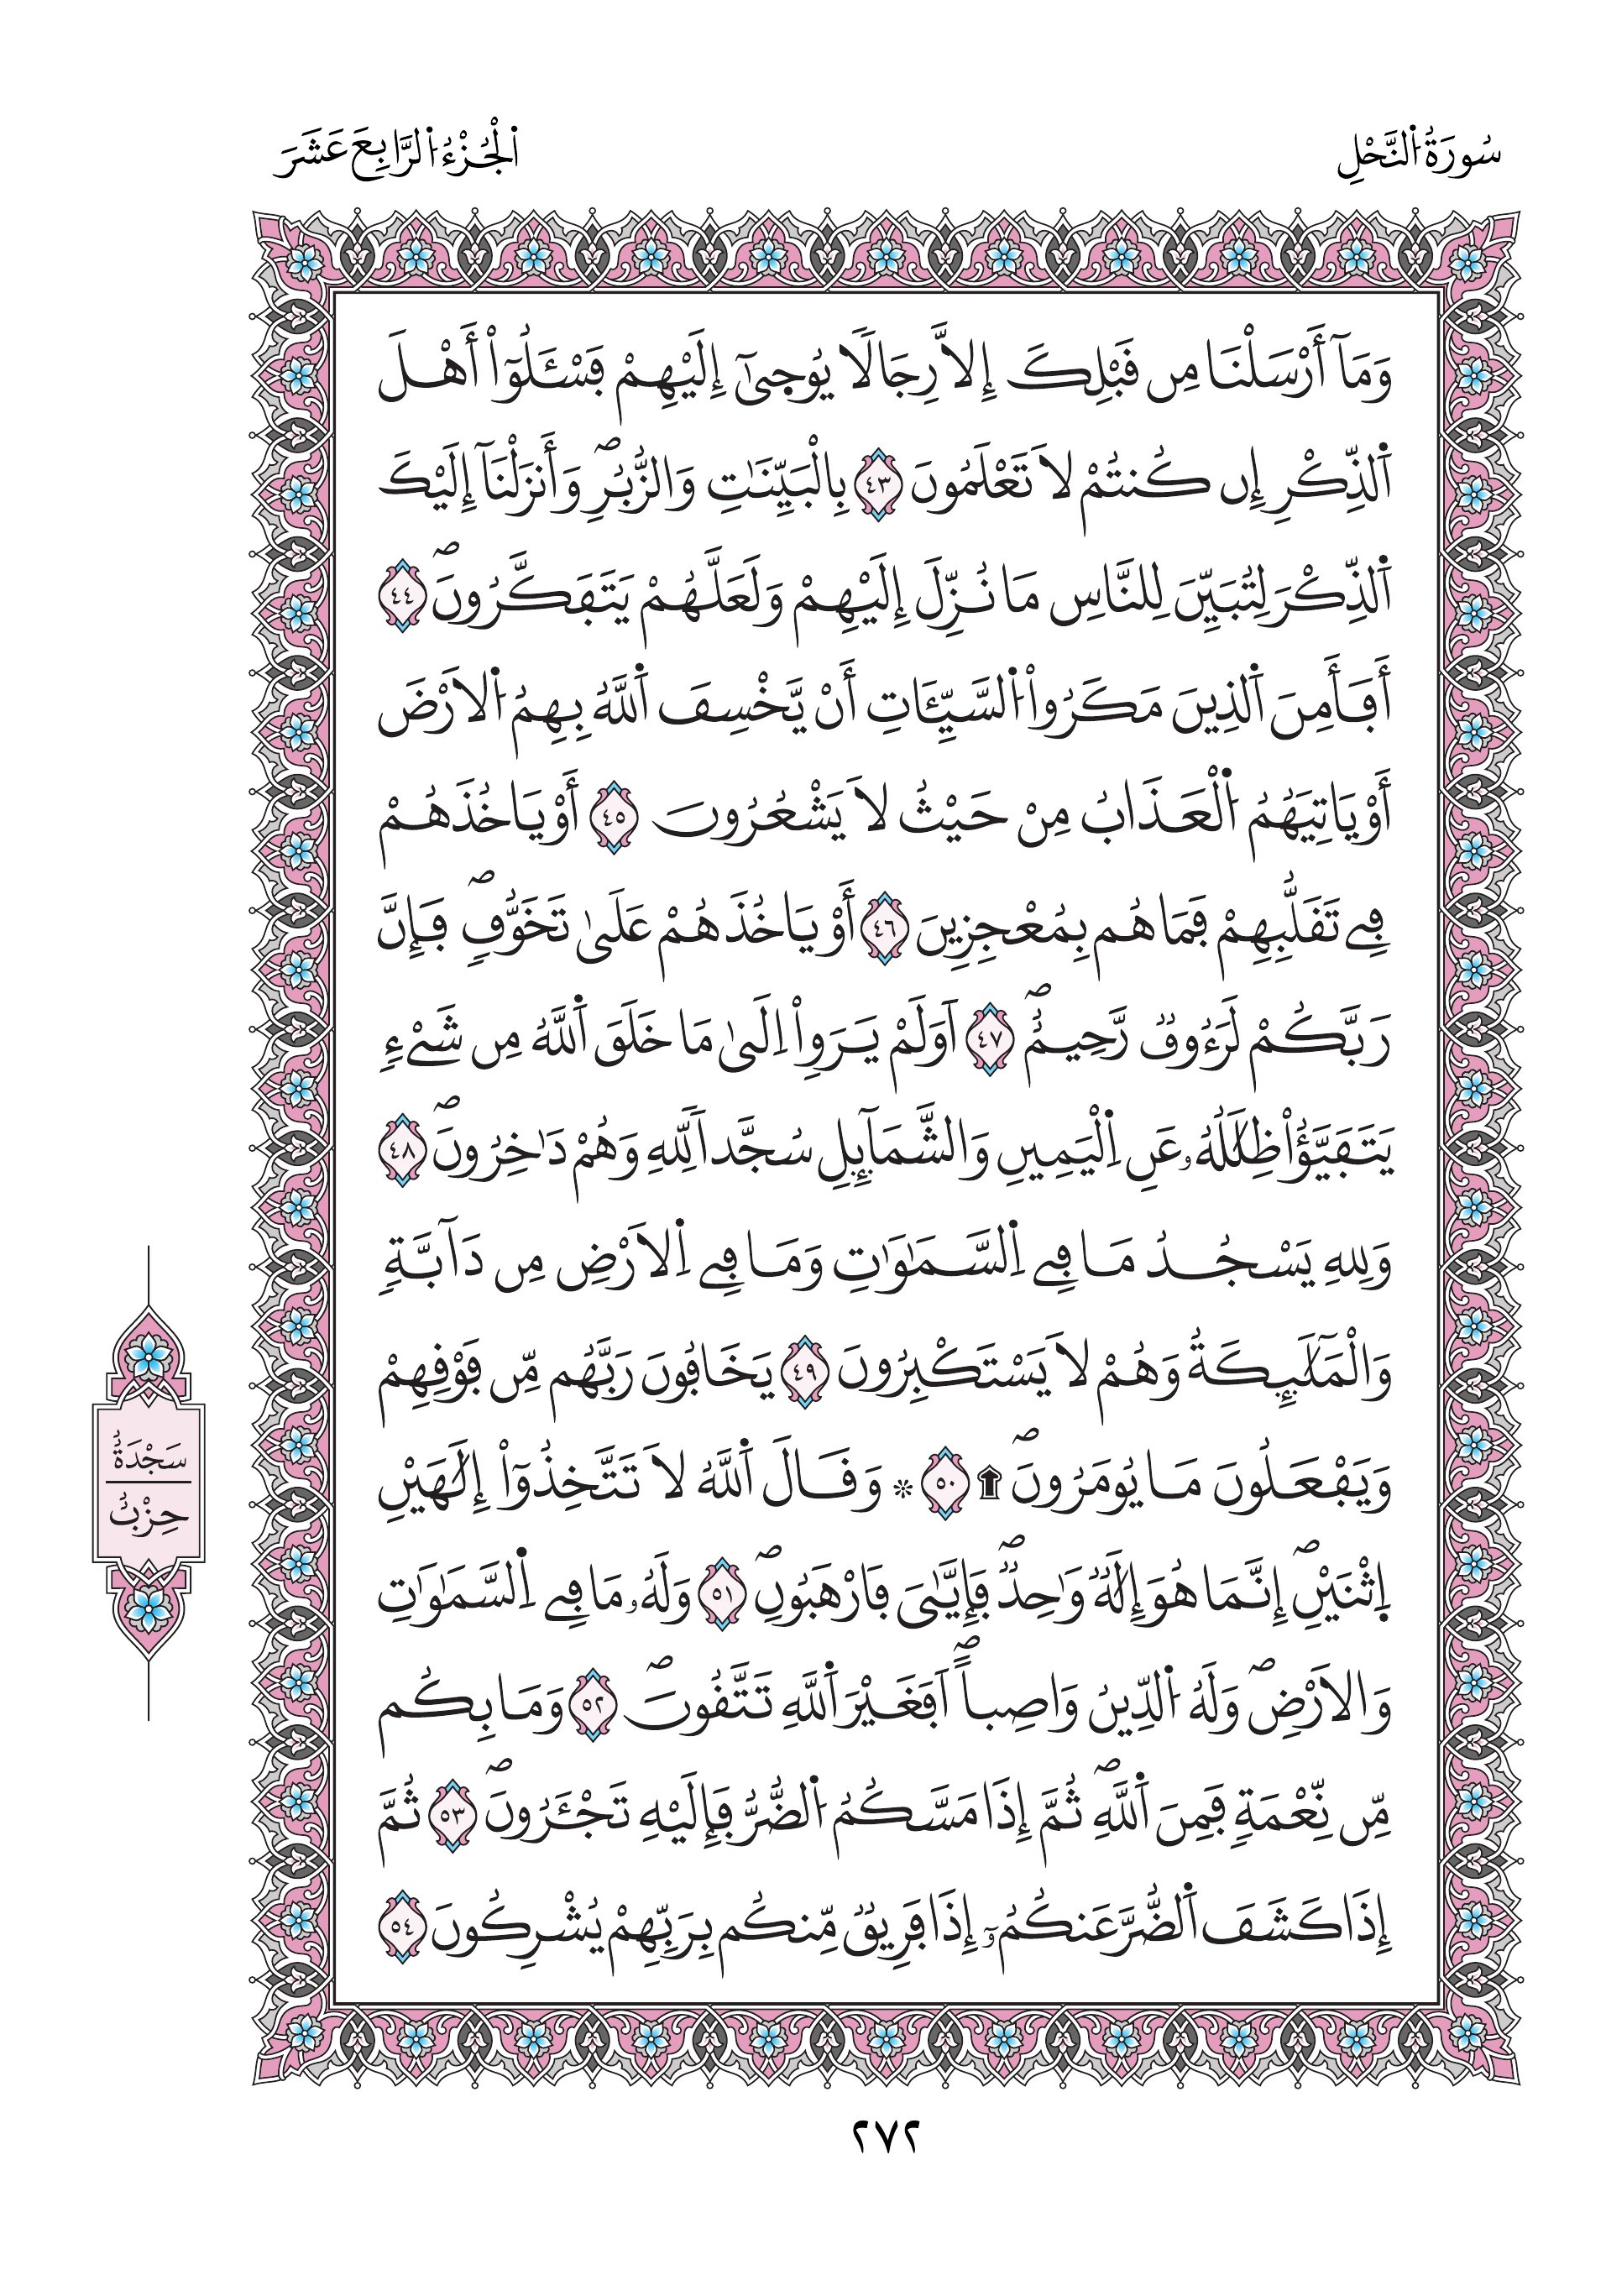 سُورَةُ اُ۬لنَّحْلِ
اَ۬لْجُزْءُ اُ۬لرَّابِعَ عَشَرَ
وَمَآ أَرْسَلْنَا مِن قَبْلِكَ إِلَّا رِجَالاٗ يُوحۭيٰٓ إِلَيْهِمْ فَسْـَٔلُوٓاْ أَهْلَ
اَ۬لذِّكْرِ إِن كُنتُمْ لَا تَعْلَمُونَ ٤٣ بِالْبَيِّنَٰتِ وَالزُّبُرِۖ وَأَنزَلْنَآ إِلَيْكَ
اَ۬لذِّكْرَ لِتُبَيِّنَ لِلنَّاسِ مَا نُزِّلَ إِلَيْهِمْ وَلَعَلَّهُمْ يَتَفَكَّرُونَۖ ٤٤
أَفَأَمِنَ اَ۬لذِينَ مَكَرُواْ اُ۬لسَّيِّـَٔاتِ أَنْ يَّخْسِفَ اَ۬للَّهُ بِهِمُ اُ۬لَارْضَ
أَوْ يَاتِيَهُمُ اُ۬لْعَذَابُ مِنْ حَيْثُ لَا يَشْعُرُونَ ٤٥ أَوْ يَاخُذَهُمْ
فِے تَقَلُّبِهِمْ فَمَا هُم بِمُعْجِزِينَ ٤٦ أَوْ يَاخُذَهُمْ عَلَىٰ تَخَوُّفٖۖ فَإِنَّ
رَبَّكُمْ لَرَءُوفٞ رَّحِيمٌۖ ٤٧ اَوَلَمْ يَرَوِاْ اِلَىٰ مَا خَلَقَ اَ۬للَّهُ مِن شَےْءٖ
يَتَفَيَّؤُاْ ظِلَٰلُهُۥ عَنِ اِ۬لْيَمِينِ وَالشَّمَآئِلِ سُجَّداٗ لِّلهِ وَهُمْ دَٰخِرُونَۖ ٤٨
وَلِلهِ يَسْجُدُ مَا فِے اِ۬لسَّمَٰوَٰتِ وَمَا فِے اِ۬لَارْضِ مِن دَآبَّةٖ
وَالْمَلَٰٓئِكَةُ وَهُمْ لَا يَسْتَكْبِرُونَ ٤٩ يَخَافُونَ رَبَّهُم مِّن فَوْقِهِمْ
وَيَفْعَلُونَ مَا يُومَرُونَۖ ۩ ٥٠ ۞ وَقَالَ اَ۬للَّهُ لَا تَتَّخِذُوٓاْ إِلَٰهَيْنِ
اِ۪ثْنَيْنِۖ إِنَّمَا هُوَ إِلَٰهٞ وَٰحِدٞۖ فَإِيَّٰيَ فَارْهَبُونِۖ ٥١ وَلَهُۥ مَا فِے اِ۬لسَّمَٰوَٰتِ
وَالَارْضِۖ وَلَهُ اُ۬لدِّينُ وَاصِباًۖ اَفَغَيْرَ اَ۬للَّهِ تَتَّقُونَۖ ٥٢ وَمَا بِكُم
مِّن نِّعْمَةٖ فَمِنَ اَ۬للَّهِۖ ثُمَّ إِذَا مَسَّكُمُ اُ۬لضُّرُّ فَإِلَيْهِ تَجْـَٔرُونَۖ ٥٣ ثُمَّ
إِذَا كَشَفَ اَ۬لضُّرَّ عَنكُمُۥٓ إِذَا فَرِيقٞ مِّنكُم بِرَبِّهِمْ يُشْرِكُونَ ٥٤
سَجْدَةٌ
حِزْبٌ
٢٧٢